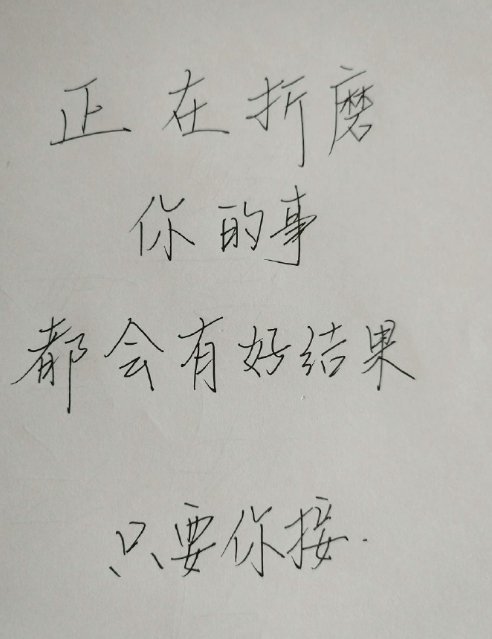 正在折磨
你的事
都会有好结果
只要你接.